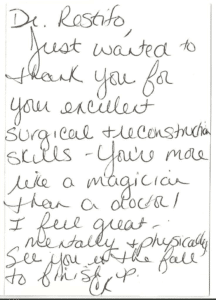 Dr. Rostifo,
Just wanted to
thank you for
your excellent
surgical + reconstruction
skills - You're more
like a magician
than a doctor!
I feel great -
mentally & physically
See you in the fall
to finish up.